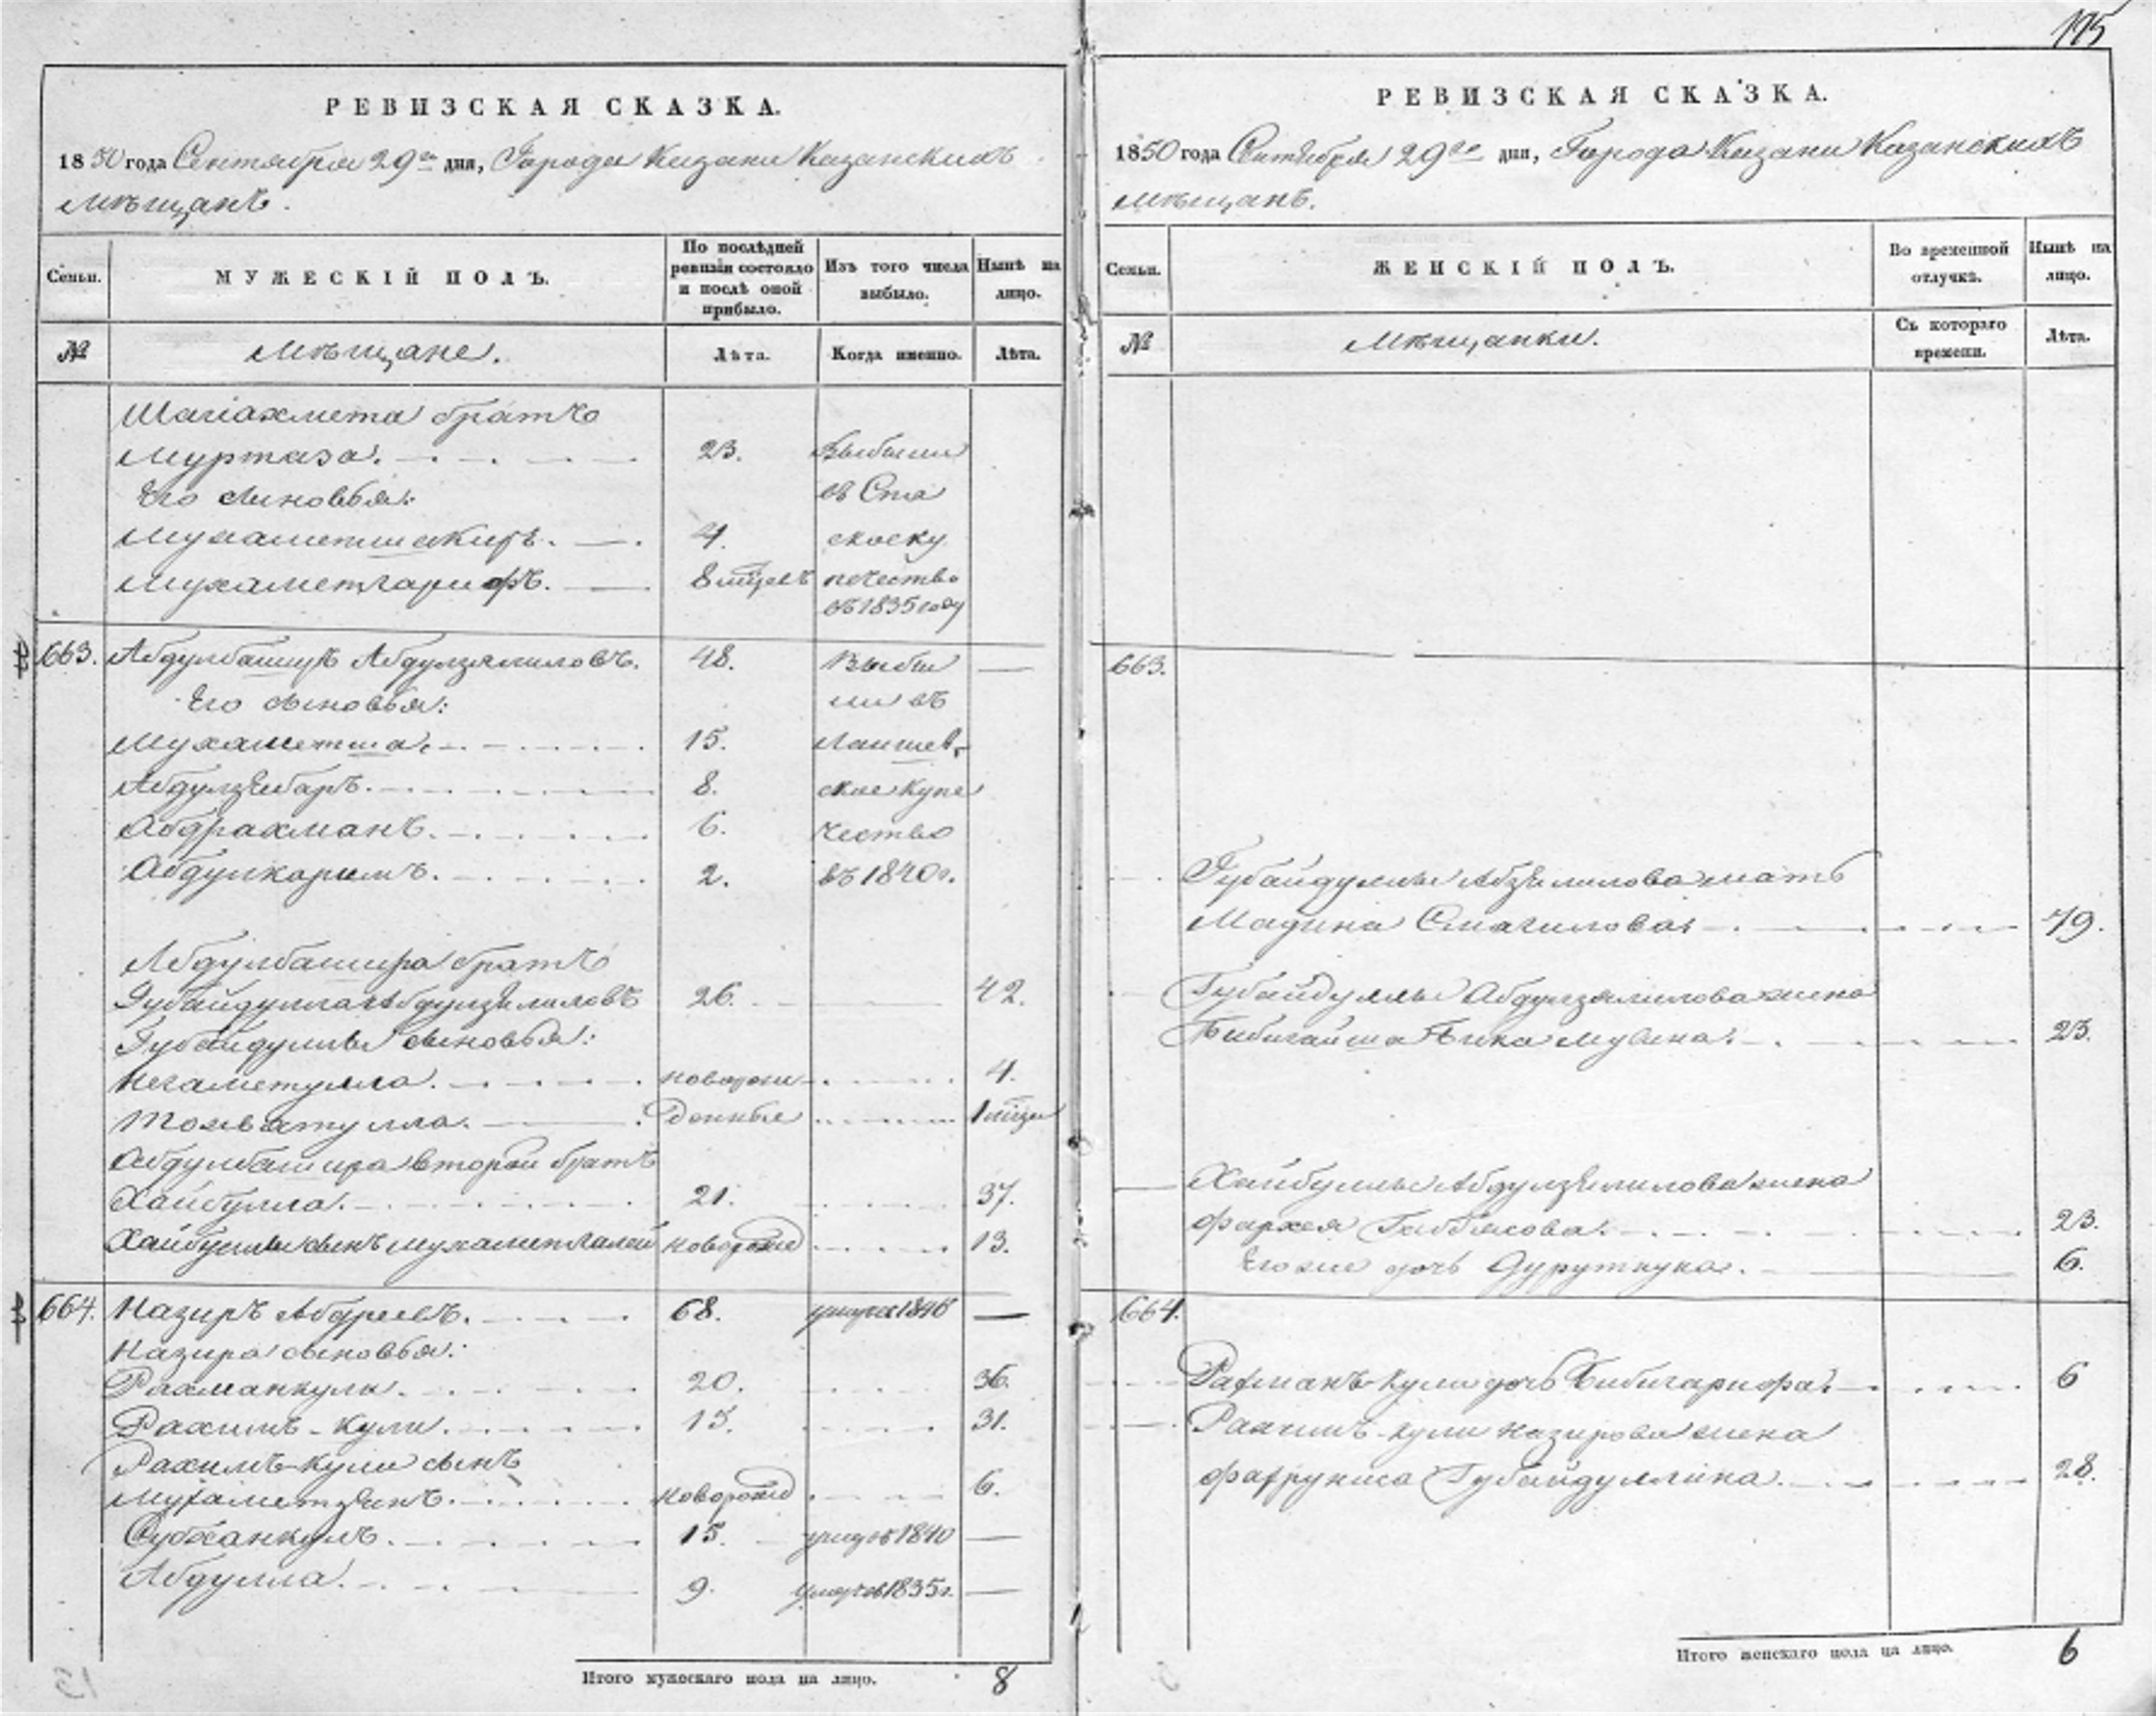 195
РЕВИЗСКАЯ СКАЗКА.
1850 года Сентября 29го дня, Города Казани Казанскихъ
мѣщанъ.
Семьи.
МУЖЕСКІЙ ПОЛЪ.
По послѣдней ревизіи состояло и послѣ оной прибыло.
Изъ того числа выбыло.
Нынѣ на лицо.
№
Мѣщане.
Лѣта.
Когда именно.
Лѣта.
Шагіахмета братъ
Муртаза. 23. Выбыли
Его сыновья: въ Ста
Мухаметшакиръ. 4.
Мухаметгарифъ. 8 мѣсец печество
въ 1835 году
663. Абдулбаширъ Абдулзялиловъ. 48. Выбы —
Его сыновья: ли въ
Мухаметша. 15. Лаишев
Абдулзябаръ. 8. ское купе
Абдрахманъ. 6. чество
Абдулкаримъ. 2. въ 1840 г.
Абдулбашира братъ
Губайдулла Абдулзялиловъ 26. 42.
Губайдуллы сыновья:
Негаметулла. новорож 4.
денные 1 мѣсец
Абдулбашира второй братъ
Хайбулла. 21. 37.
Хайбуллы сынъ Мухаметгалей новорожд 13.
664. Назиръ Абдреевъ. 68. умеръ 1846 —
Назира сыновья:
Рахманкули. 20. 36.
Рахимъ-кули. 15. 31.
Рахимъ-кули сынъ
Мухаметзянъ. новорожд 6.
Субханкулъ. 15. 1840 —
Абдулла. 9. умеръ въ 1835 г. —
Итого мужескаго пола на лицо. 8
РЕВИЗСКАЯ СКАЗКА.
1850 года Сентября 29го дня, Города Казани Казанскихъ
мѣщанъ.
Семьи.
ЖЕНСКІЙ ПОЛЪ.
Во временной отлучкѣ.
Нынѣ на лицо.
№
Мѣщанки.
Съ котораго времени.
Лѣта.
663.
Губайдуллы Абзялилова мать
Мадина Смагилова 79.
Губайдуллы Абдулзялилова жена
Бибигайша 23.
Хайбуллы Абдулзялилова жена
Фархея Габбясова. 23.
Его же дочь 6.
664.
Рахманъ-кули дочь Бибигарифа. 6
Рахимъ-кули Назирова жена
Фахруниса Губайдуллина. 28.
Итого женскаго пола на лицо. 6